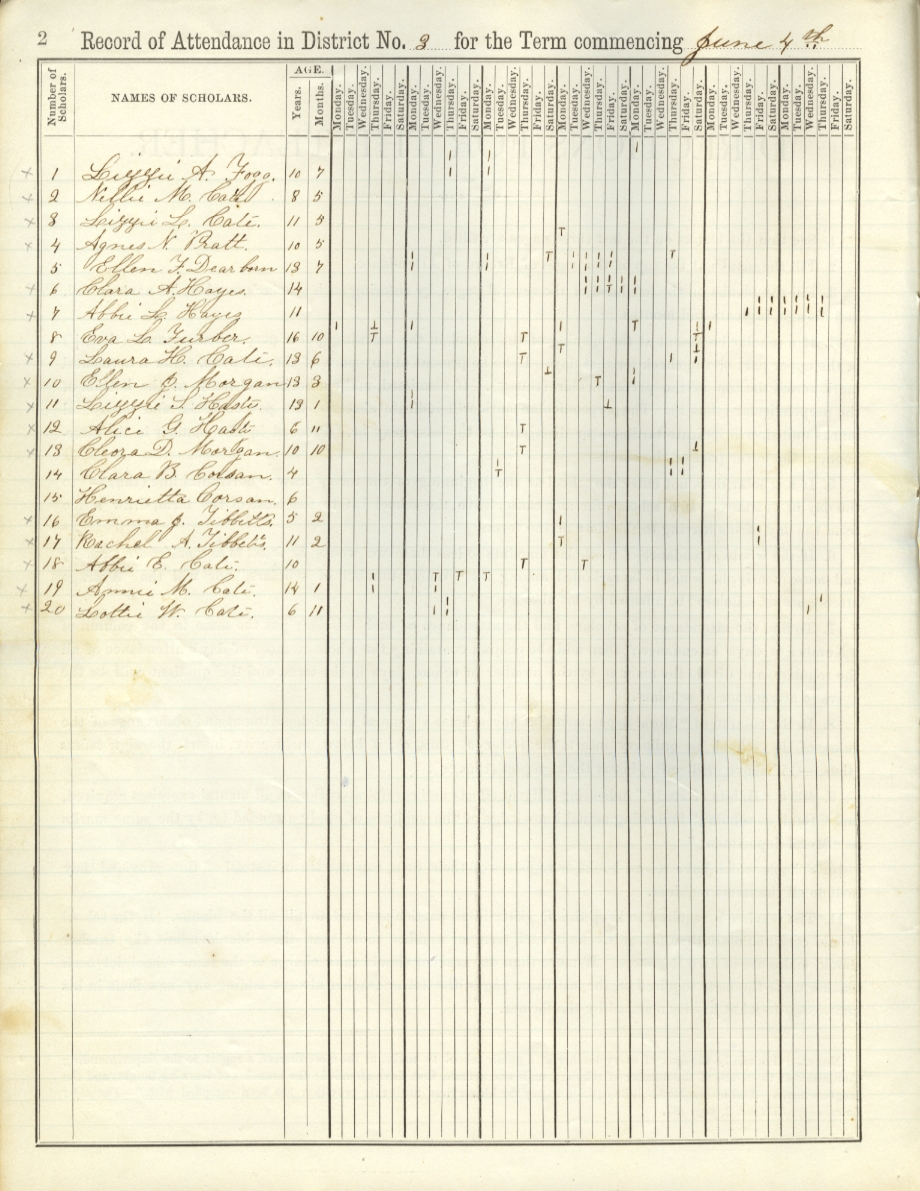 2 Record of Attendance in District No. 3 for the Term commencing June 4th
Number of Scholars. NAMES OF SCHOLARS. AGE. Years. Months. Monday. Tuesday. Wednesday. Thursday. Friday. Saturday. Monday. Tuesday. Wednesday. Thursday. Friday. Saturday. Monday. Tuesday. Wednesday. Thursday. Friday. Saturday. Monday. Tuesday. Wednesday. Thursday. Friday. Saturday. Monday. Tuesday. Wednesday. Thursday. Friday. Saturday. Monday. Tuesday. Wednesday. Thursday. Friday. Saturday. Monday. Tuesday. Wednesday. Thursday. Friday. Saturday.
x 1 Lizzie A. Fogg. 10 7
x 2 Nellie M. Cate. 8 5
x 3 Lizzie L. Cate. 11 5
x 4 Agnes N. Pratt. 10 5
5 Ellen F. Dearborn 13 7
x 6 Clara A. Hayes. 14
x 7 Abbie L. Hayes 11
8 Eva L. Furber. 16 10
x 9 Laura H. Cate. 13 6
x 10 Ellen J. Morgan 13 3
x 11 Lizzie S. Hasty. 13 1
x 12 Alice G. Hasty 6 11
x 13 Cleora D. Morgan. 10 10
14 Clara B. Corsan. 4
15 Henrietta Corsan. 6
x 16 Emma J. Tibbetts. 5 2
x 17 Rachel A. Tibbetts. 11 2
x 18 Abbie E. Cate. 10
x 19 Annie M. Cate. 14 1
x 20 Lottie W. Cate. 6 11